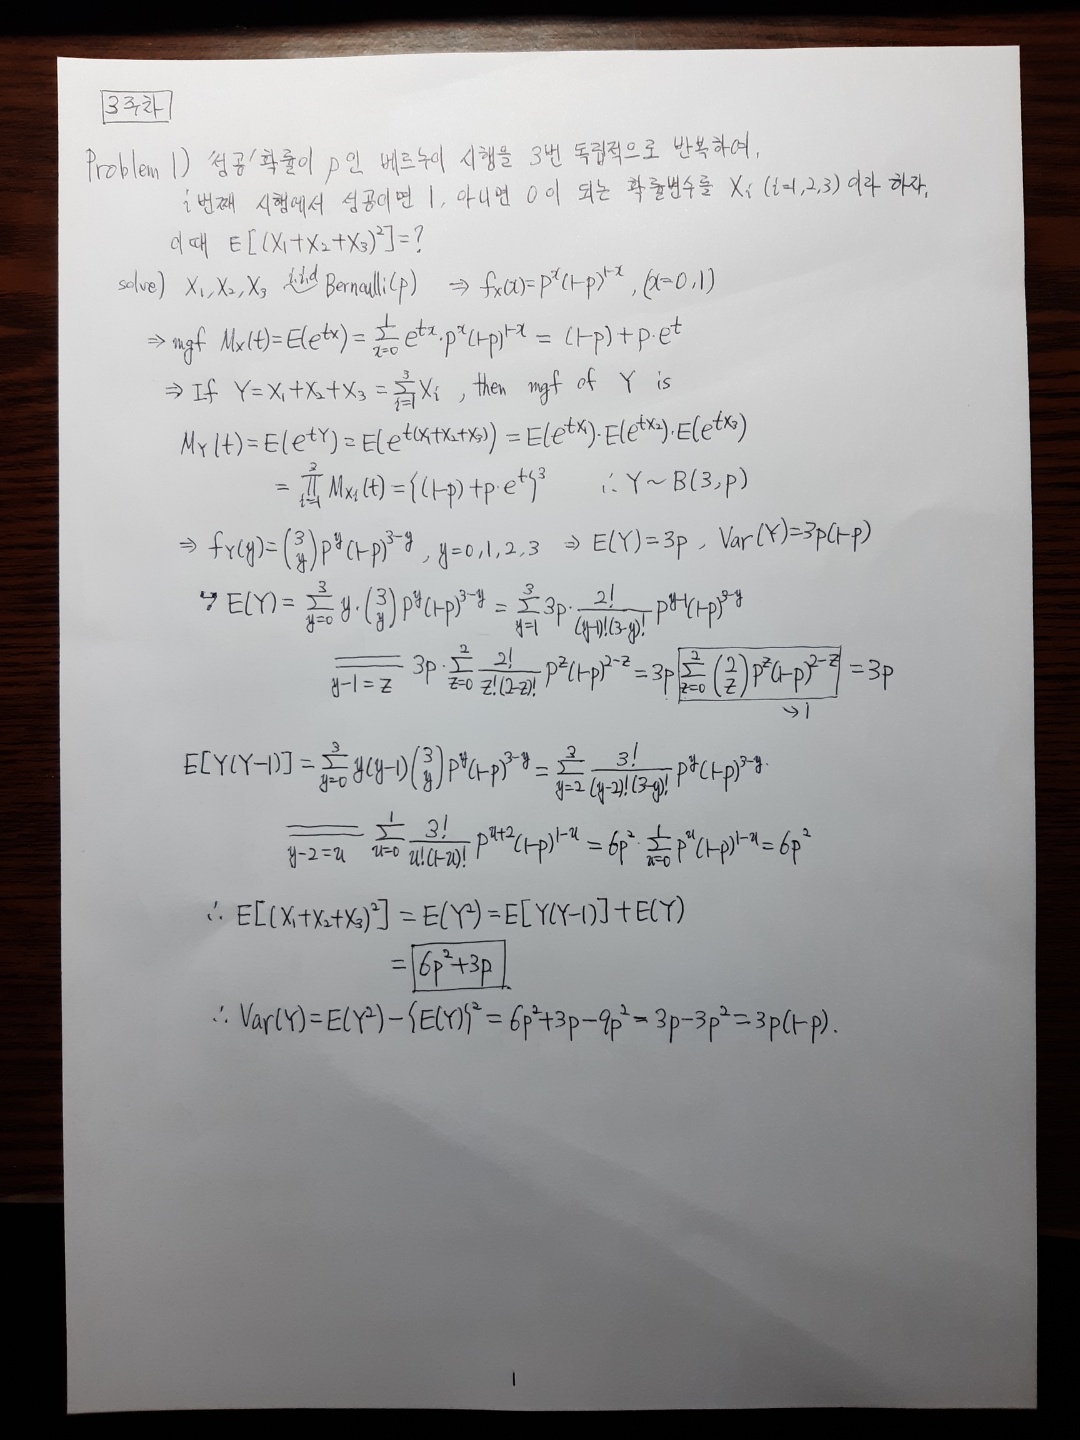 3주차
Problem 1) '성공' 확률이 p인 베르누이 시행을 3번 독립적으로 반복하여,
i번째 시행에서 성공이면 1, 아니면 0이 되는 확률변수를 Xᵢ (i=1,2,3)이라 하자.
이때 E[(X₁+X₂+X₃)²]=?
solve) X₁, X₂, X₃ i.i.d Bernoulli(p) ⇒ fₓ(x)=pˣ(1-p)¹⁻ˣ, (x=0,1)
⇒ mgf Mₓ(t)=E(e^{tx})=∑_{x=0}^{1} e^{tx}·pˣ(1-p)^{1-x} = (1-p)+p·e^t
⇒ If Y=X₁+X₂+X₃=∑_{i=1}^{3} Xᵢ, then mgf of Y is
M_Y(t)=E(e^{tY})=E(e^{t(X₁+X₂+X₃)})=E(e^{tX₁})·E(e^{tX₂})·E(e^{tX₃})
=∏_{i=1}^{3} M_{Xᵢ}(t)={(1-p)+p·e^t}³ ∴ Y~B(3,p)
⇒ f_Y(y)=(3 y)p^y(1-p)^{3-y}, y=0,1,2,3 ⇒ E(Y)=3p, Var(Y)=3p(1-p)
↳ E(Y)=∑_{y=0}^{3} y·(3 y)p^y(1-p)^{3-y}=∑_{y=1}^{3} 3p·2!/((y-1)!(3-y)!) p^{y-1}(1-p)^{3-y}
═ y-1=z 3p·∑_{z=0}^{2} 2!/(z!(2-z)!) p^z(1-p)^{2-z}=3p ∑_{z=0}^{2} (2 z)p^z(1-p)^{2-z} =3p
↘1
E[Y(Y-1)]=∑_{y=0}^{3} y(y-1)(3 y)p^y(1-p)^{3-y}=∑_{y=2}^{3} 3!/((y-2)!(3-y)!) p^y(1-p)^{3-y}
═ y-2=u ∑_{u=0}^{1} 3!/(u!(1-u)!) p^{u+2}(1-p)^{1-u}=6p²·∑_{u=0}^{1} p^u(1-p)^{1-u}=6p²
∴ E[(X₁+X₂+X₃)²]=E(Y²)=E[Y(Y-1)]+E(Y)
= 6p²+3p
∴ Var(Y)=E(Y²)-{E(Y)}²=6p²+3p-9p²=3p-3p²=3p(1-p).
1